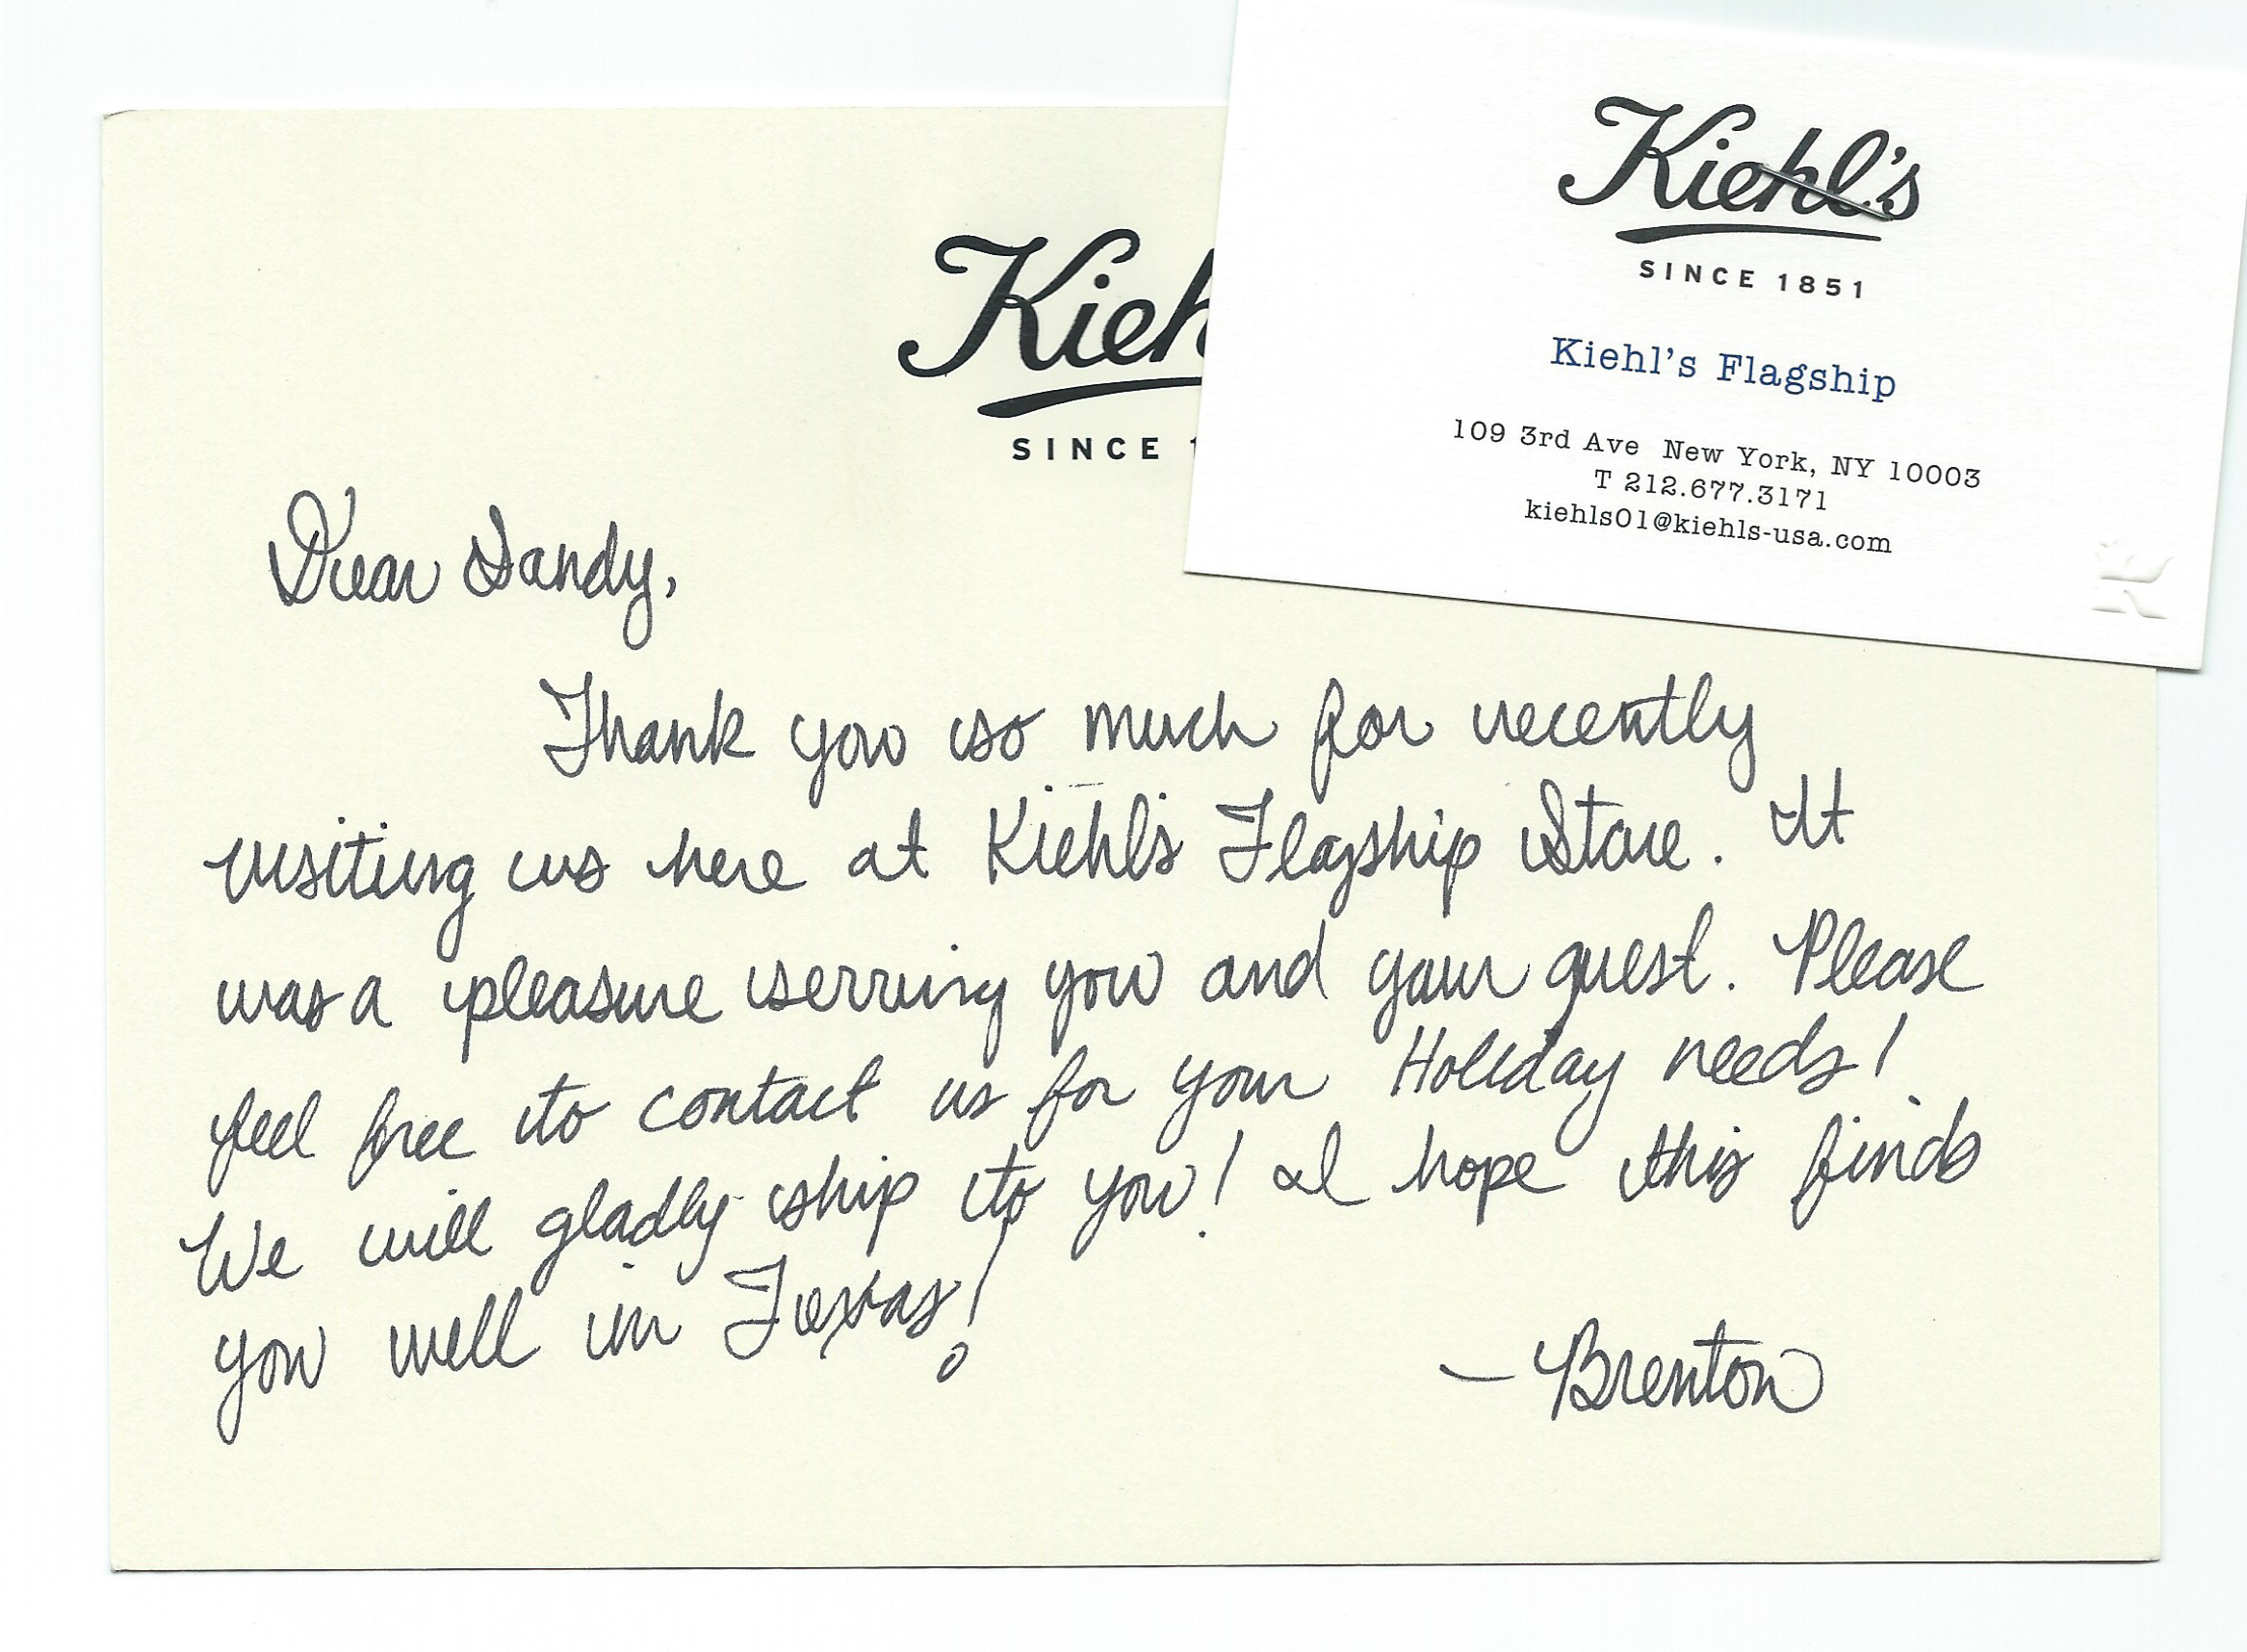 Kiehl's
SINCE 1851
Kiehl's Flagship
109 3rd Ave New York, NY 10003
T 212.677.3171
kiehls01@kiehls-usa.com
Kieh
SINCE 1
Dear Sandy,
Thank you so much for recently
visiting us here at Kiehl's Flagship Store. It
was a pleasure serving you and your guest. Please
feel free to contact us for your Holiday needs!
We will gladly ship to you! I hope this finds
you well in Texas!
- Brenton